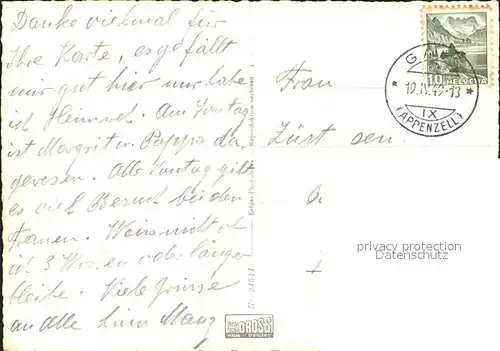 Danke vielmal für
Ihre Karte, es gefällt
mir gut hier nur habe
ich Heimweh. Am Sontag
ist Margrit u. Pappa da
gewesen. Alle Sontag gibt
es viel Besuch bei den
Frauen. Weis nicht ob
ich 3 Wochen oder länger
bleibe. Viele Grüsse
an Alle
Manz
Echte Photographie - Reproduktion verboten
Nº 24511
GROSS
Frau
Züst sen.
HELVETIA
10
19.IV.49-13
IX
(APPENZELL)
privacy protection
Datenschutz